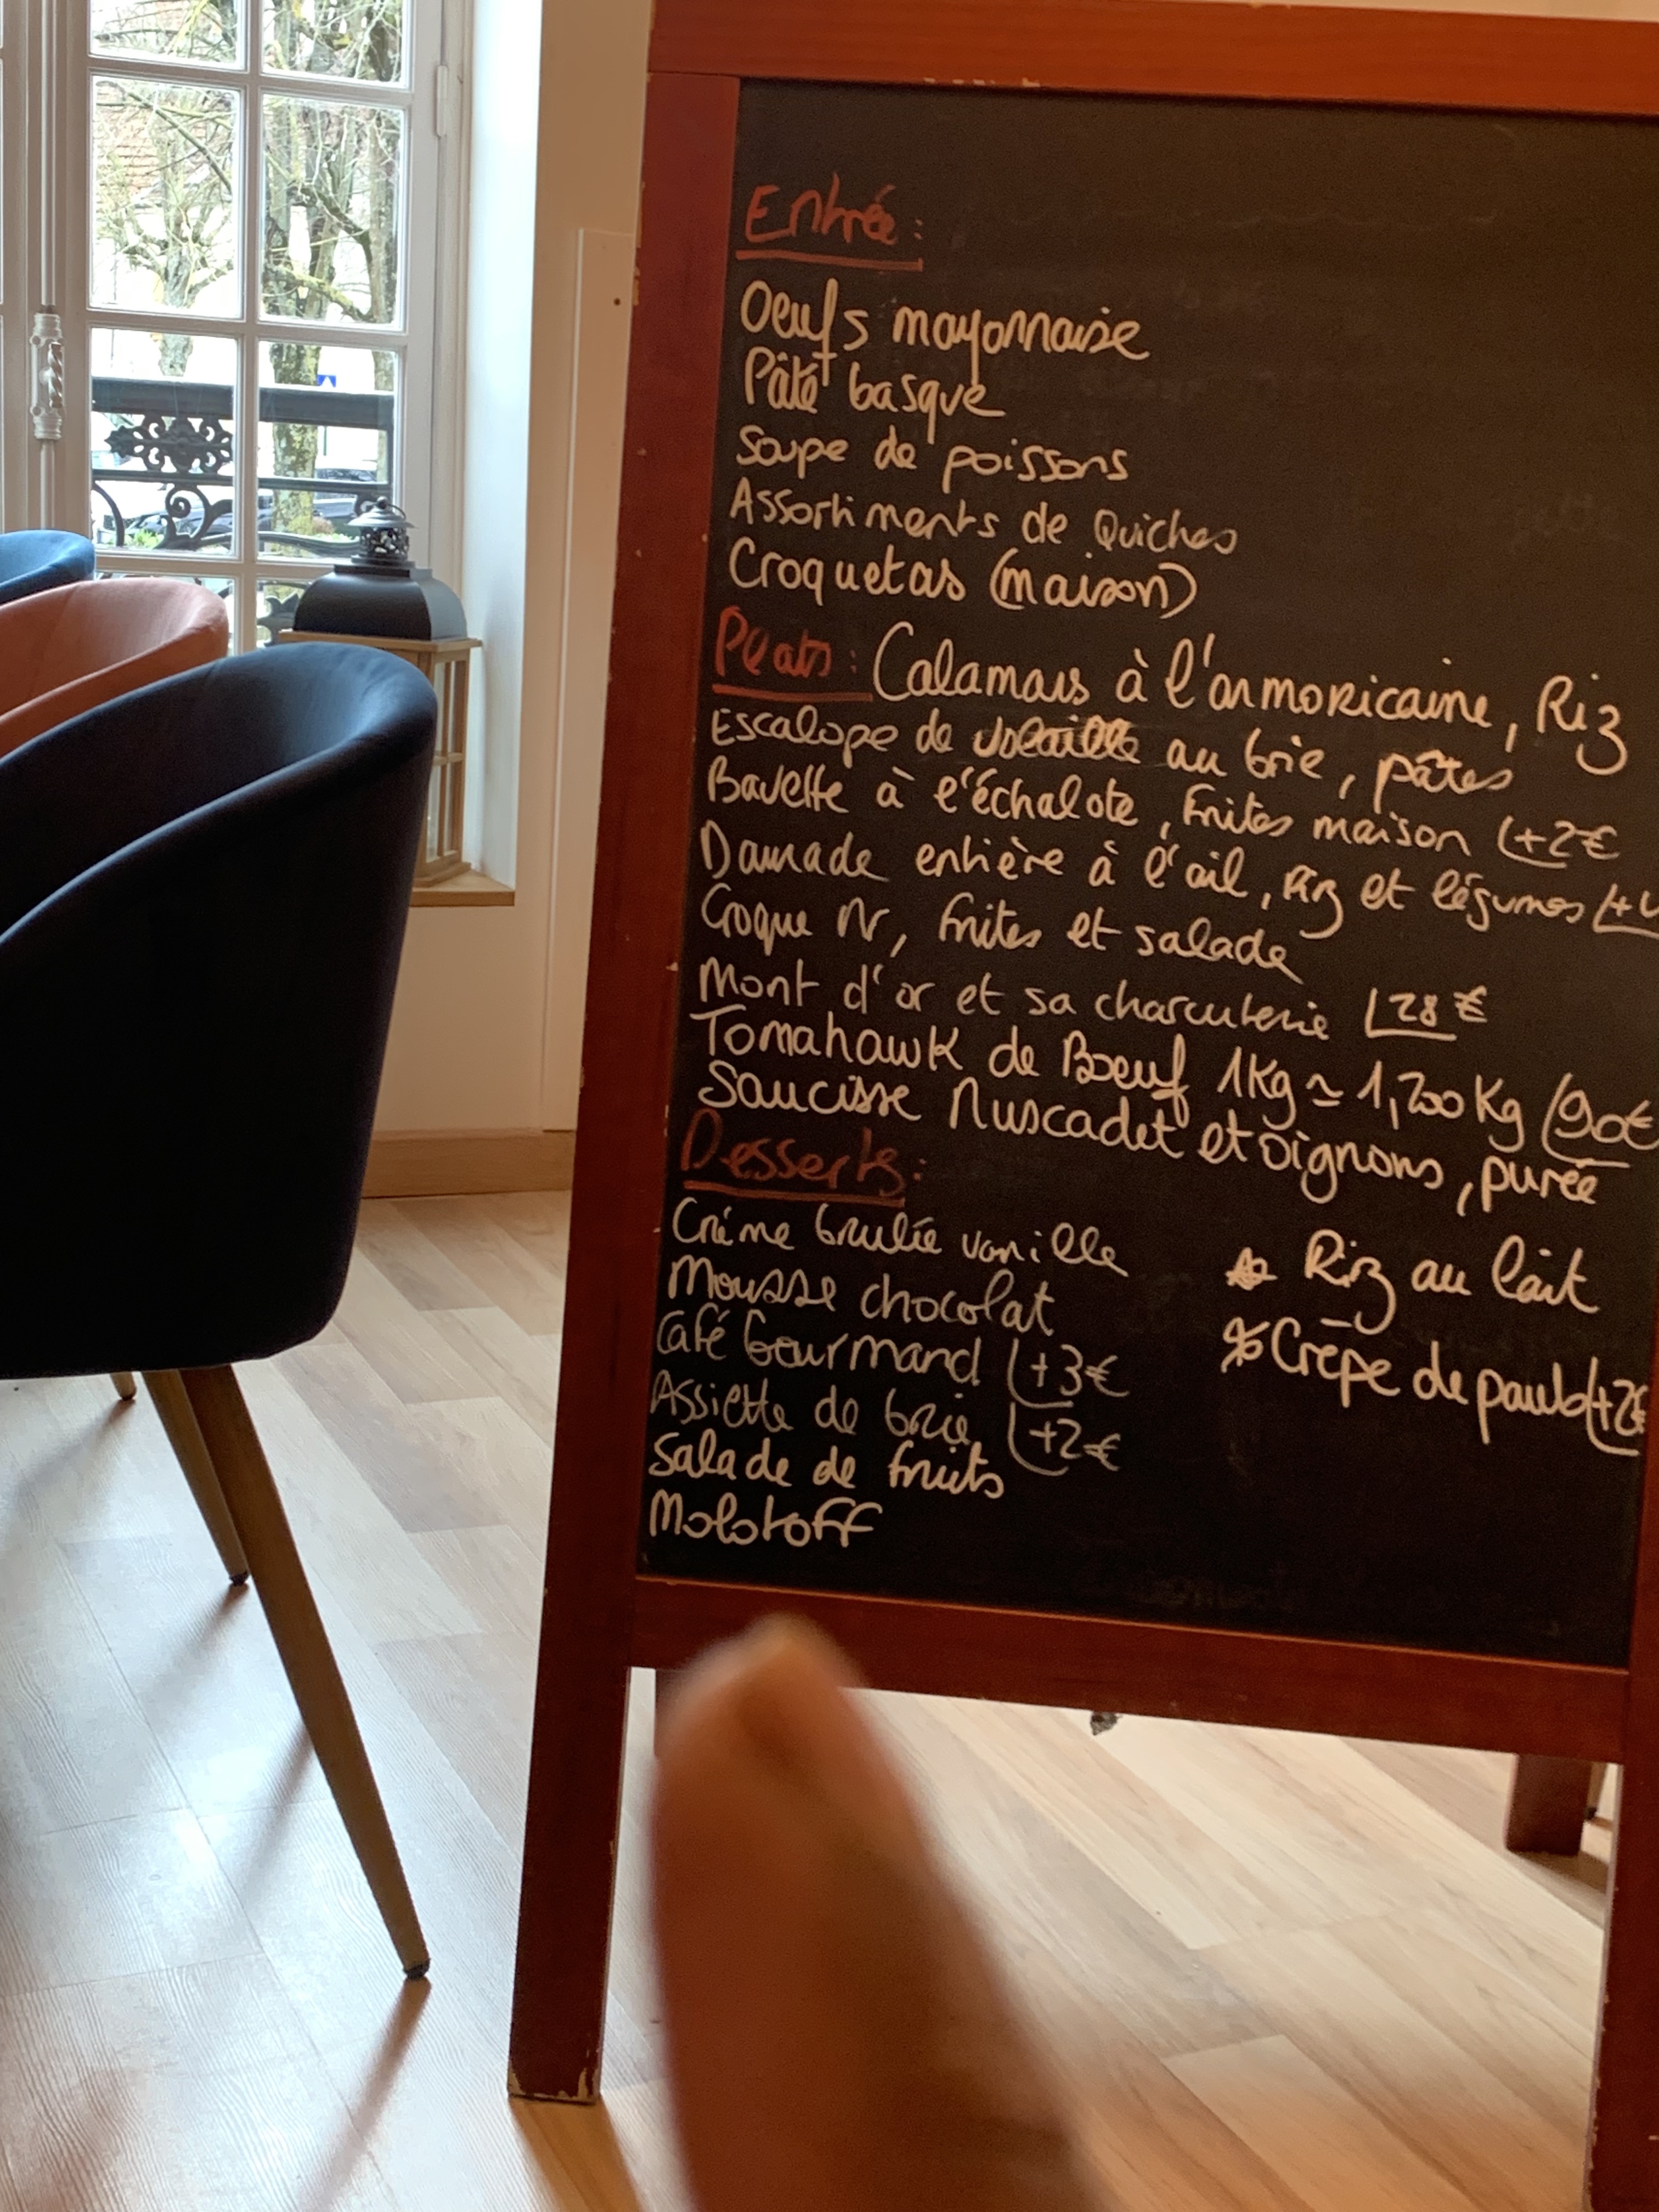 Entrée :
Oeufs mayonnaise
Pâté basque
Soupe de poissons
Assortiments de Quiches
Croquetas (maison)
Plats : Calamars à l'armoricaine, Riz
Escalope de volaille au brie, pâtes
Bavette à l'échalote, Frites maison (+2€
Daurade entière à l'ail, Riz et légumes (+4
Croque Mr, frites et salade
Mont d'or et sa charcuterie (28€
Tomahawk de Boeuf 1Kg ≃ 1,200Kg (90€
Saucisse Muscadet et oignons, purée
Desserts :
Crème brulée vanille
Mousse chocolat
Café Gourmand (+3€
Assiette de brie (+2€
Salade de fruits
Molotoff
Riz au lait
Crêpe de paulo (+2€